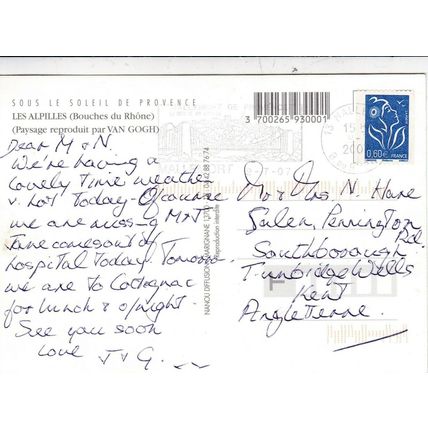 SOUS LE SOLEIL DE PROVENCE
LES ALPILLES (Bouches du Rhône)
(Paysage reproduit par VAN GOGH)
Dear M & N.
We're having a
lovely time weather
v. hot today. Of course
we are miss-g M & N
comes out of
hospital today. Tomorrow
we are to Cotignac
for lunch & o/night.
See you soon
Love J & G.
NANOU DIFFUSION MARIGNANE
Reproduction interdite
3 700265 930001
0,60€ FRANCE
Mr & Mrs N. Hare
Salem, Pennington Rd.
Southborough
Tunbridge Wells
Kent
Angleterre.